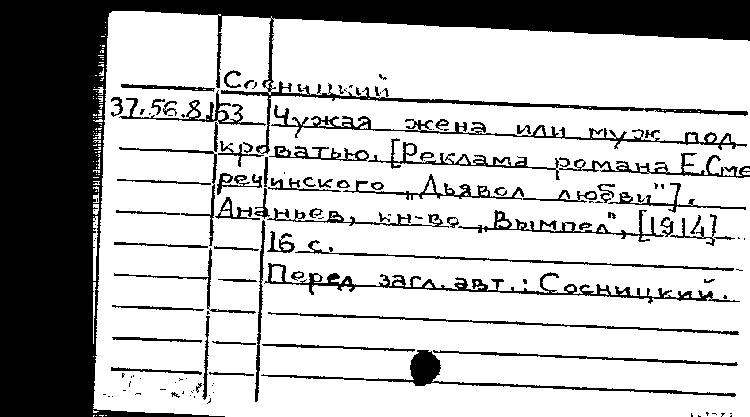 Сосницкий
37.56.8.153 Чужая жена или муж под
кроватью. [Реклама романа Е.Сме
речинского „Дьявол любви"].
Ананьев, кн-во „Вымпел", [1914]
16 с.
Перед загл. авт.: Сосницкий.